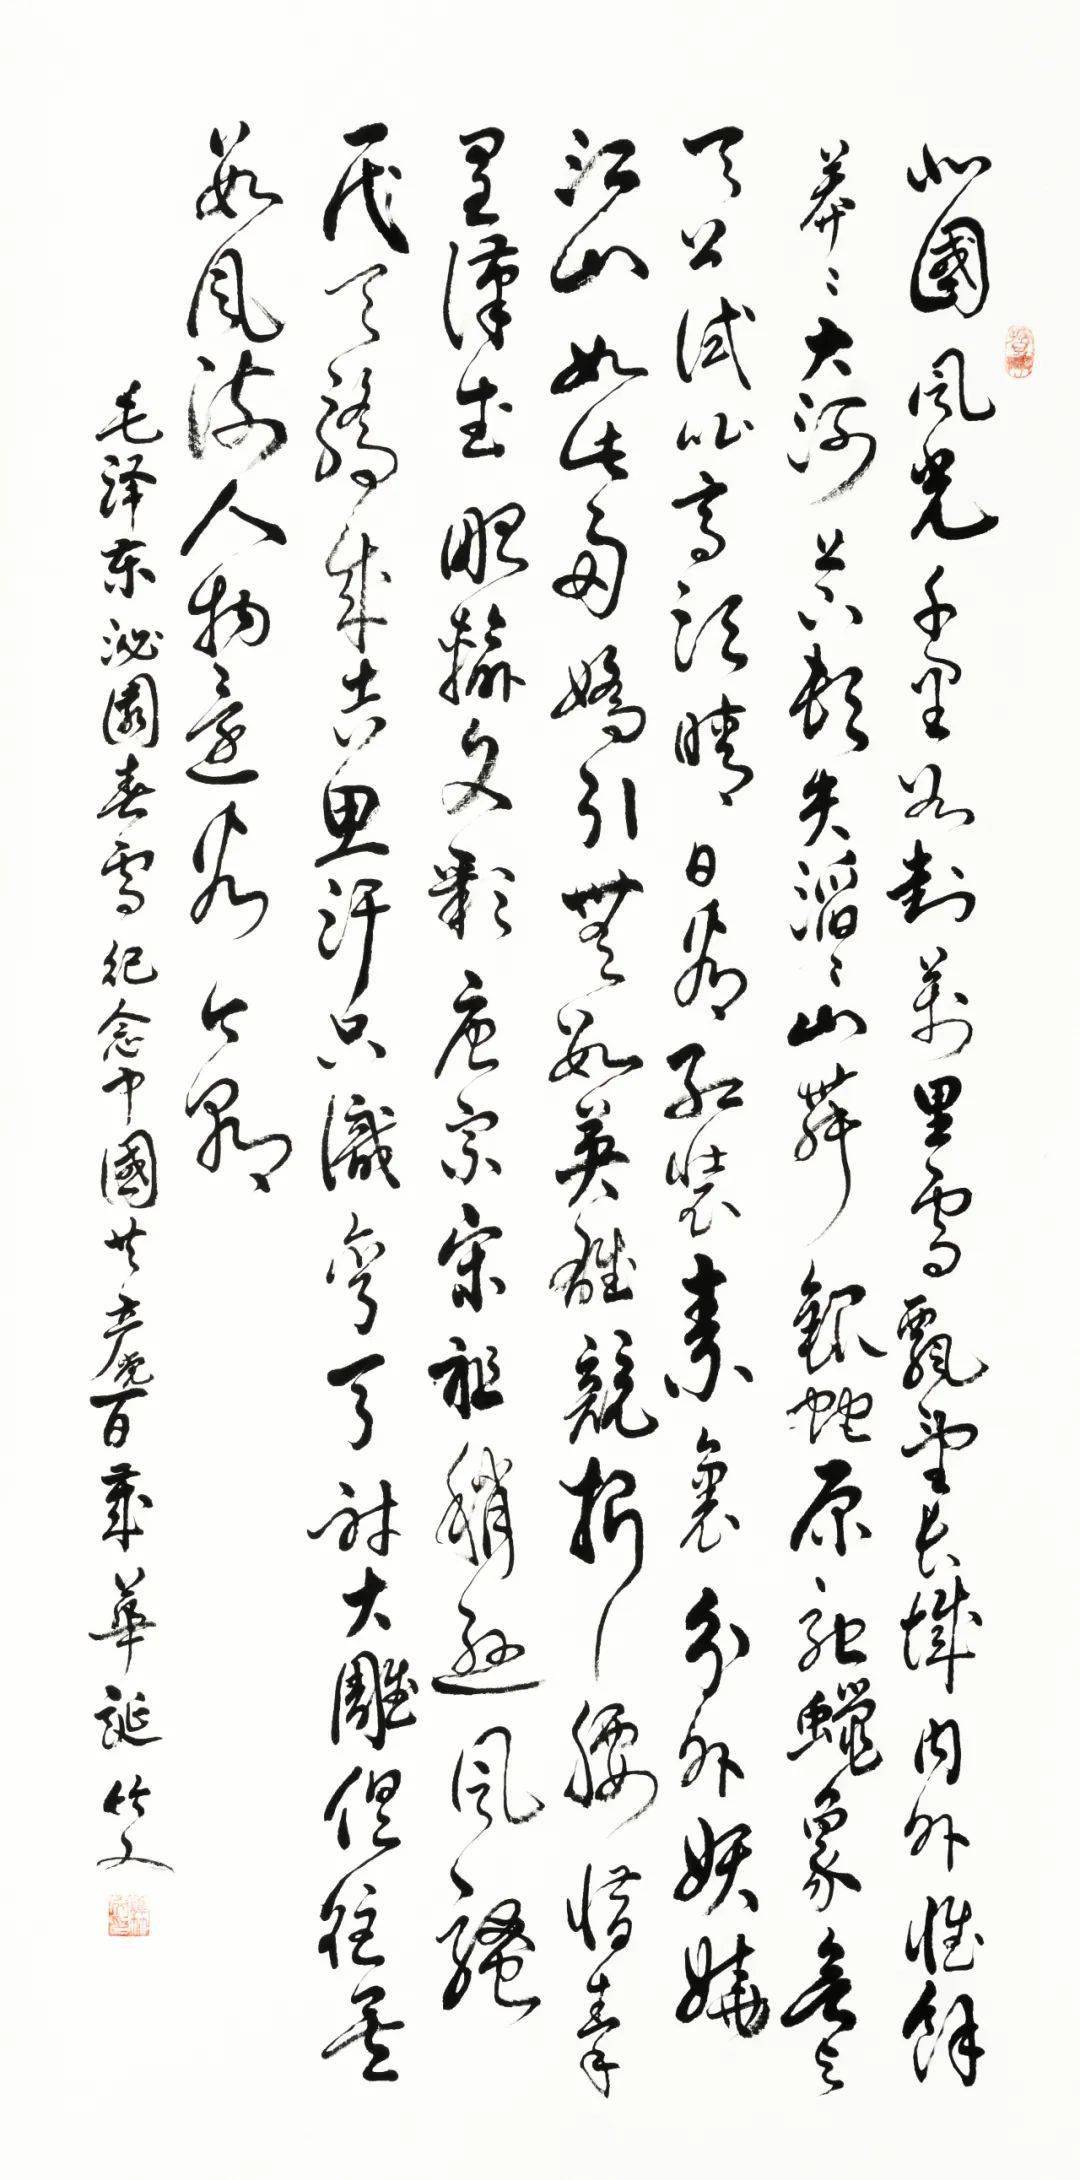 北國風光千里冰封萬里雪飄望長城内外惟餘
莽〻大河上下頓失滔〻山舞銀蛇原馳蠟象欲与
天公試比高須晴日看紅裝素裹分外妖嬈
江山如此多嬌引無數英雄競折腰惜秦
皇漢武略輸文彩唐宗宋祖稍遜風騷
一代天驕成吉思汗只識彎弓射大雕俱往矣
數風流人物還看今朝
毛泽东沁園春雪纪念中國共产党百歲華誕竹文